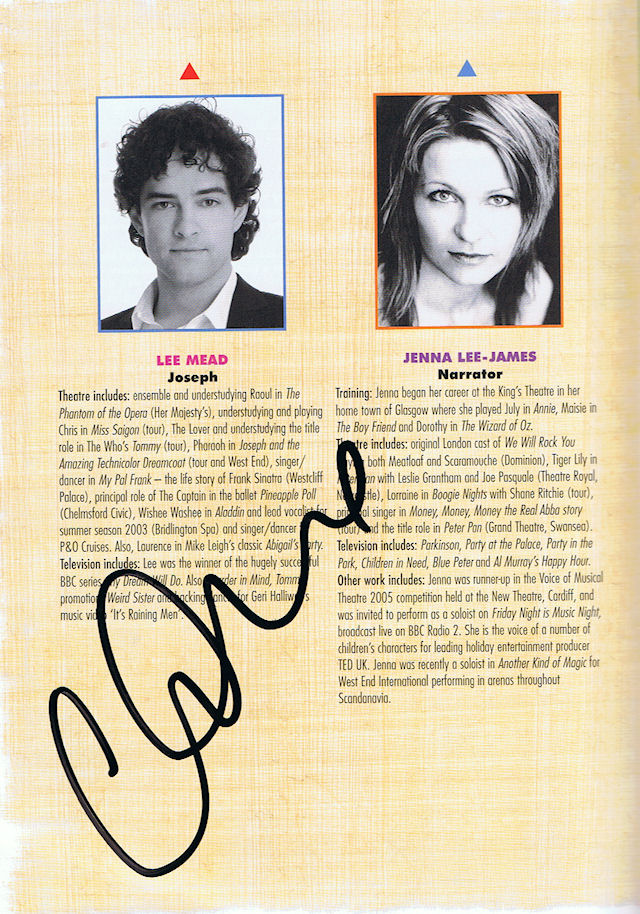 LEE MEAD
Joseph
Theatre includes: ensemble and understudying Raoul in The
Phantom of the Opera (Her Majesty's), understudying and playing
Chris in Miss Saigon (tour), The Lover and understudying the title
role in The Who's Tommy (tour), Pharaoh in Joseph and the
Amazing Technicolor Dreamcoat (tour and West End), singer/
dancer in My Pal Frank – the life story of Frank Sinatra (Westcliff
Palace), principal role of The Captain in the ballet Pineapple Poll
(Chelmsford Civic), Wishee Washee in Aladdin and lead vocalist for
summer season 2003 (Bridlington Spa) and singer/dancer
P&O Cruises. Also, Laurence in Mike Leigh's classic Abigail's Party.
Television includes: Lee was the winner of the hugely successful
BBC series Any Dream Will Do. Also Murder in Mind, Tommy
promotion, Weird Sister and backing dancer for Geri Halliwell's
music video 'It's Raining Men'.
JENNA LEE-JAMES
Narrator
Training: Jenna began her career at the King's Theatre in her
home town of Glasgow where she played July in Annie, Maisie in
The Boy Friend and Dorothy in The Wizard of Oz.
Theatre includes: original London cast of We Will Rock You
both Meatloaf and Scaramouche (Dominion), Tiger Lily in
Peter Pan with Leslie Grantham and Joe Pasquale (Theatre Royal,
Newcastle), Lorraine in Boogie Nights with Shane Ritchie (tour),
principal singer in Money, Money, Money the Real Abba story
(tour) and the title role in Peter Pan (Grand Theatre, Swansea).
Television includes: Parkinson, Party at the Palace, Party in the
Park, Children in Need, Blue Peter and Al Murray's Happy Hour.
Other work includes: Jenna was runner-up in the Voice of Musical
Theatre 2005 competition held at the New Theatre, Cardiff, and
was invited to perform as a soloist on Friday Night is Music Night,
broadcast live on BBC Radio 2. She is the voice of a number of
children's characters for leading holiday entertainment producer
TED UK. Jenna was recently a soloist in Another Kind of Magic for
West End International performing in arenas throughout
Scandanavia.